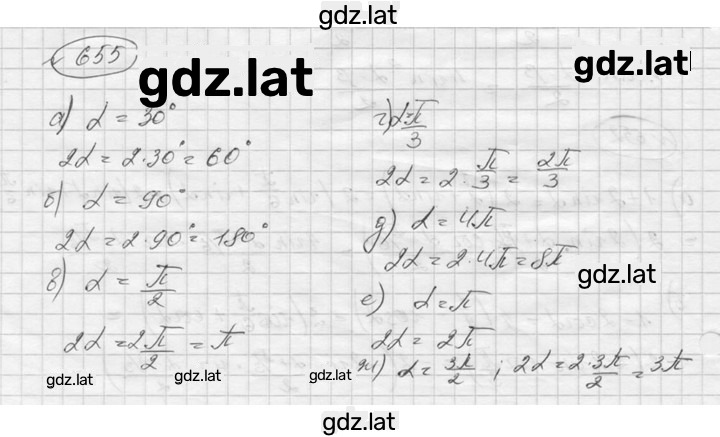 gdz.lat
655
gdz.lat
gdz.lat
а) α = 30°
2α = 2·30° = 60°
б) α = 90°
2α = 2·90° = 180°
в) α = π/2
2α = 2π/2 = π
г) α = π/3
2α = 2·π/3 = 2π/3
д) α = 4π
2α = 2·4π = 8π
gdz.lat
е) α = π
2α = 2π
ж) α = 3π/2 ; 2α = 2·3π/2 = 3π
gdz.lat
gdz.lat
gdz.lat
gdz.lat